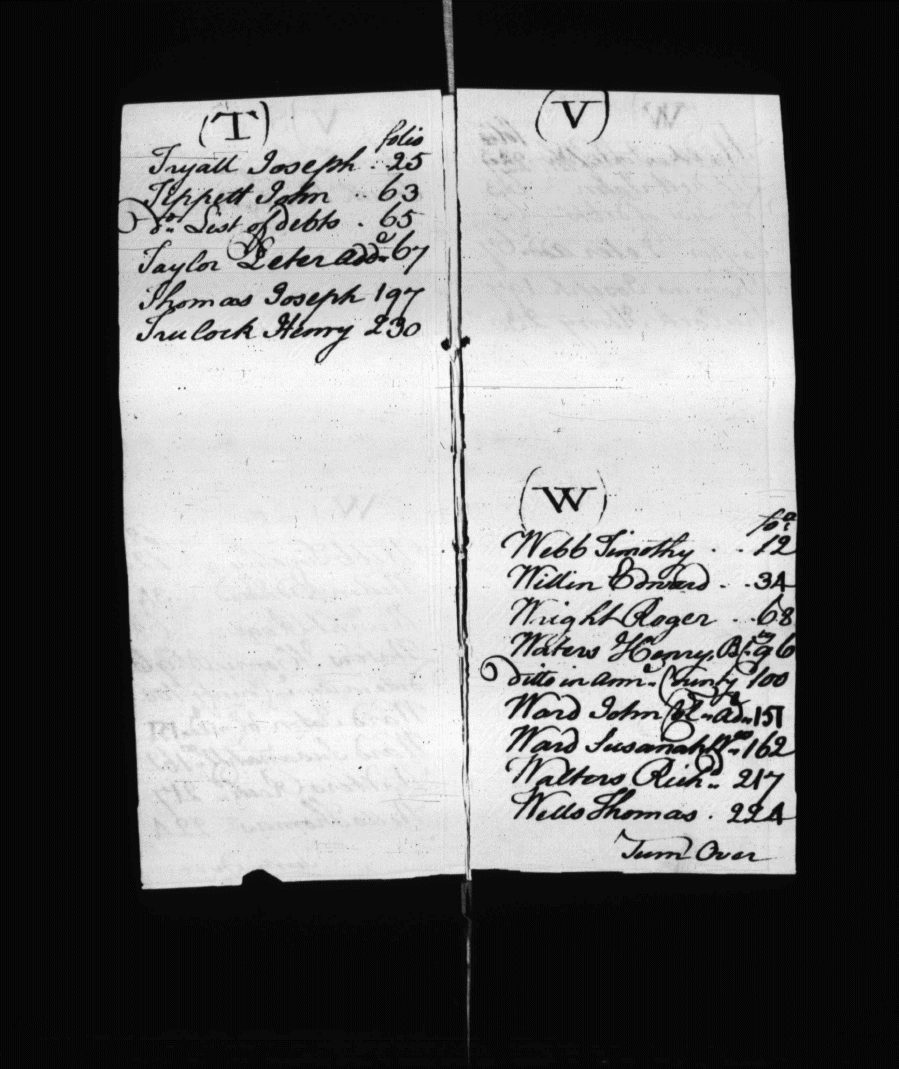 (T)
folio
Tryall Joseph . 25
Tippett John .. 63
do.. List of debts . 65
Taylor Peter add.. 67
Thomas Joseph 197
Trulock Henry 230
(V)
(W)
foo.
Webb Timothy . . 12
Willin Edward . . 34
Wright Roger . . 68
Waters Henry, 96
Ditto in 100
Ward John 151
Ward Susanah 162
Walters Richd.. 217
Wells Thomas . 224
Turn Over